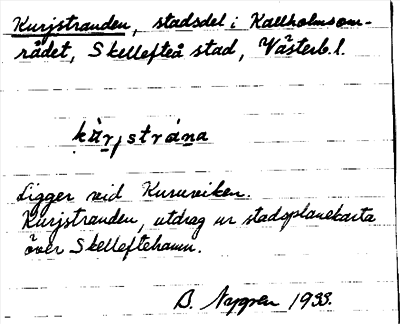 Kurjstranden, stadsdel i Kallholmsom-
rådet, Skellefteå stad, Västerb. l.
kùrjstrána
Ligger vid Kuruviken.
Kurjstranden, utdrag ur stadsplanekarta
över Skelleftehamn.
B. Nygren 1933.